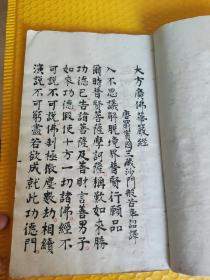 大方廣佛華嚴經
唐罽賓國三藏沙門般若奉詔譯
入不思議解脫境界普賢行願品
爾時普賢菩薩摩訶薩稱歎如來勝
功德已告諸菩薩及善財言善男子
如來功德假使十方一切諸佛經不
可說不可說佛剎極微塵數劫相續
演說不可窮盡若欲成就此功德門